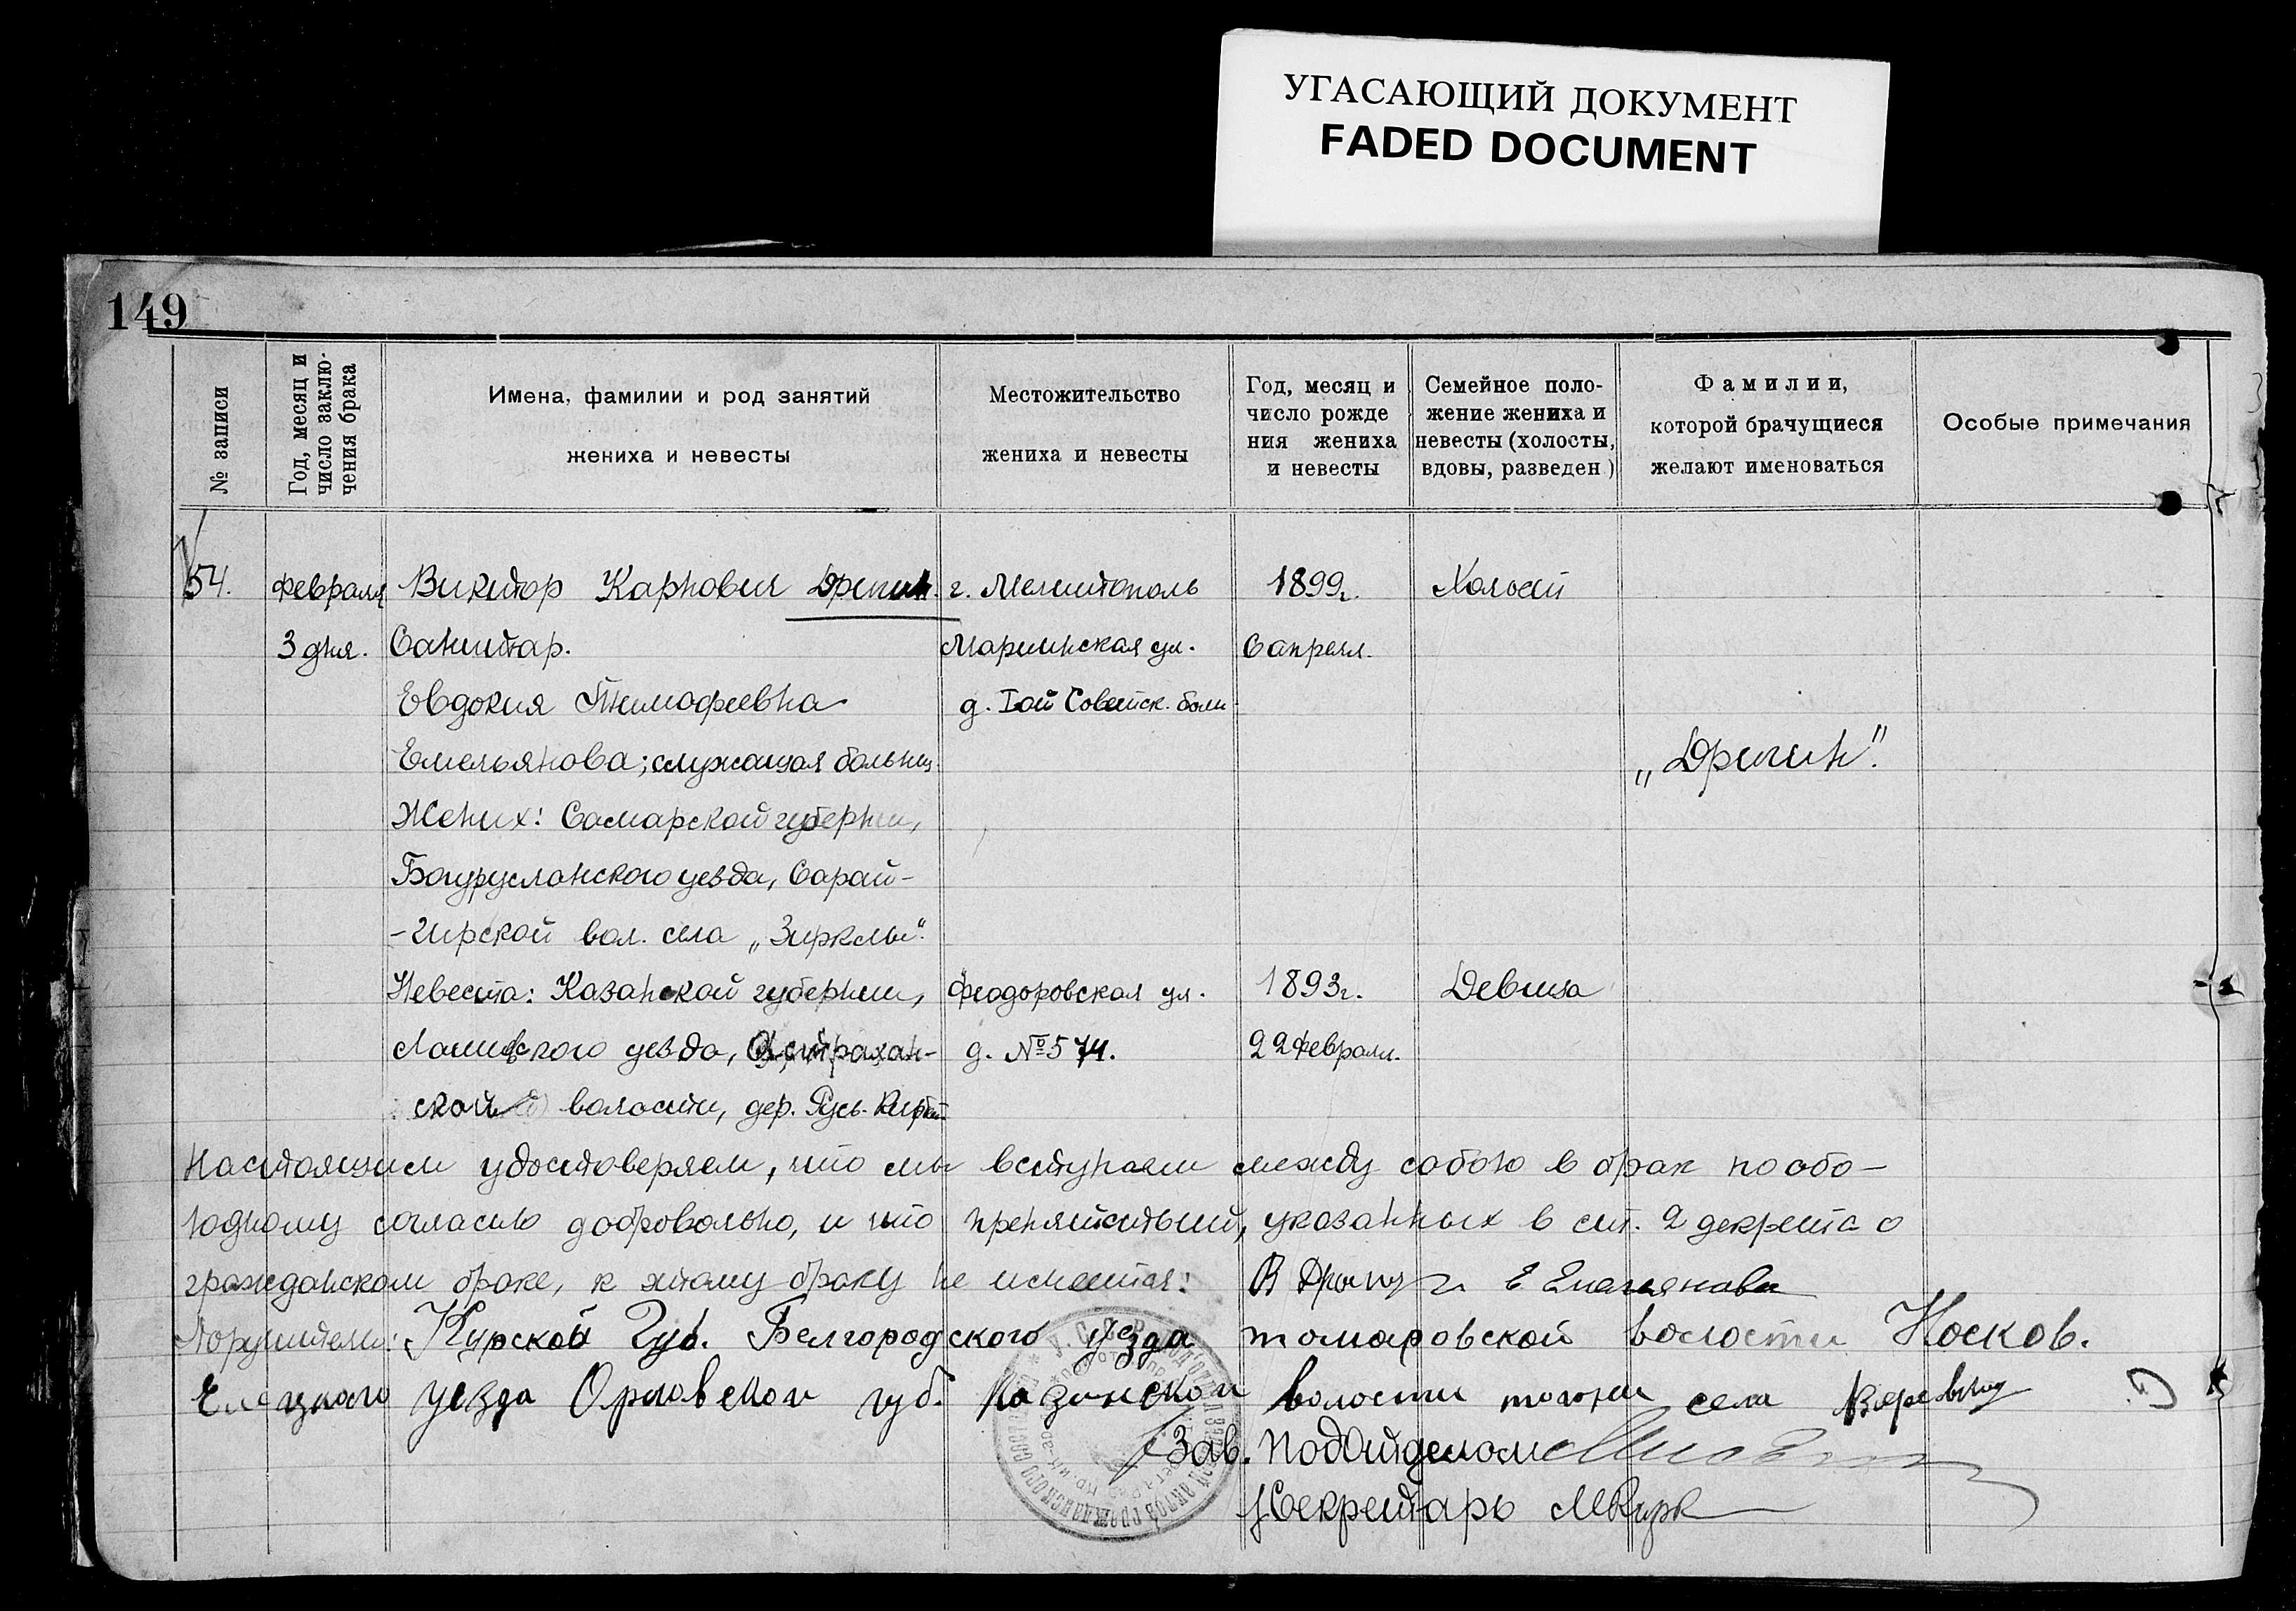 УГАСАЮЩИЙ ДОКУМЕНТ
FADED DOCUMENT
149
№ записи
Год, месяц и
число заклю-
чения брака
Имена, фамилии и род занятий
жениха и невесты
Местожительство
жениха и невесты
Год, месяц и
число рожде
ния жениха
и невесты
Семейное поло-
жение жениха и
невесты (холосты,
вдовы, разведен.)
Фамилии,
которой брачущиеся
желают именоваться
Особые примечания
54. Февраля Виктор Карпович г. Мелитополь 1899г. Холост
3 дня. Санитар. Мариинская ул. 6 апреля.
Евдокия Тимофеевна д. Iой Советск. больн
Емельянова; служащая больниц.
„Дригин".
Жених: Самарской губернии,
Богурусланского уезда, Сарай-
-гирской вол. села „Зирклы".
Невеста: Казанской губернии, Феодоровская ул. 1893г. Девица
уезда, Астрахан- д. №574. 22 Февраля.
ской волости, дер. Русь.
Настоящим удостоверяем, что мы вступаем между собою в брак по обо-
юдному согласию добровольно, и что препятствий, указанных в ст. 2 декрета о
гражданском браке, к этому браку не имеется: В Е Емельянова
Поручители: Курской Губ. Белгородского уезда томаровской волости Носков.
Елецкого уезда Орловской губ. Казинской волости тогоже села
Зав. Подотделом
Секретарь